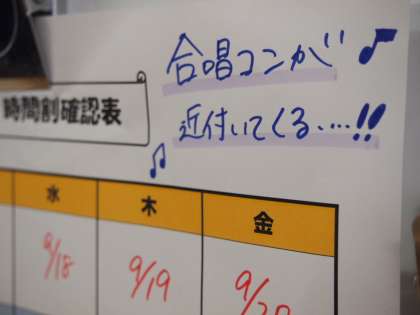 合唱コンが
近付いてくる……!!
時間割確認表
水
木
金
9/18
9/19
9/20